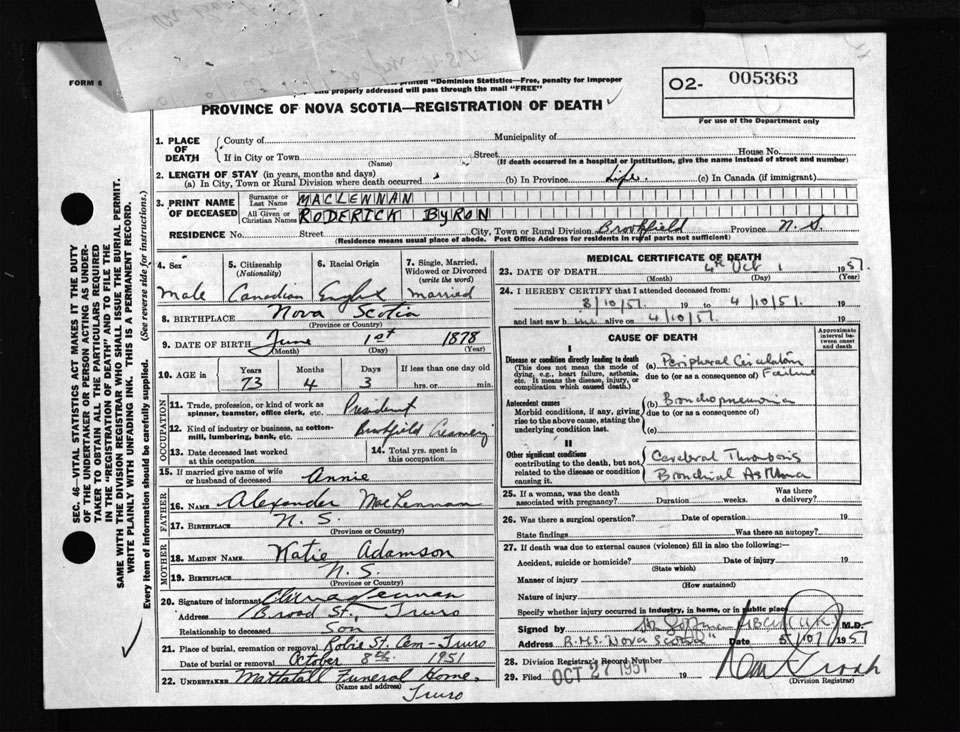 FORM 6
printed "Dominion Statistics—Free, penalty for improper
and properly addressed will pass through the mail "FREE"
PROVINCE OF NOVA SCOTIA—REGISTRATION OF DEATH
O2- 005363
For use of the Department only
1. PLACE OF DEATH
County of Municipality of
If in City or Town Street House No.
(Name) (If death occurred in a hospital or institution, give the name instead of street and number)
2. LENGTH OF STAY (in years, months and days)
(a) In City, Town or Rural Division where death occurred (b) In Province Life. (c) In Canada (if immigrant)
3. PRINT NAME OF DECEASED
Surname or Last Name MACLENNAN
All Given or Christian Names RODERICK BYRON
RESIDENCE No. Street City, Town or Rural Division Brookfield Province N.S.
(Residence means usual place of abode. Post Office Address for residents in rural parts not sufficient)
4. Sex Male
5. Citizenship (Nationality) Canadian
6. Racial Origin English
7. Single, Married, Widowed or Divorced (write the word) Married
8. BIRTHPLACE Nova Scotia
(Province or Country)
9. DATE OF BIRTH June 1st 1878
(Month) (Day) (Year)
10. AGE in Years Months Days If less than one day old
73 4 3 hrs. or min.
OCCUPATION
11. Trade, profession, or kind of work as spinner, teamster, office clerk, etc. President
12. Kind of industry or business, as cotton-mill, lumbering, bank, etc. Brookfield Creamery
13. Date deceased last worked at this occupation
14. Total yrs. spent in this occupation
15. If married give name of wife or husband of deceased Annie
FATHER
16. NAME Alexander MacLennan
17. BIRTHPLACE N.S.
(Province or Country)
MOTHER
18. MAIDEN NAME Katie Adamson
19. BIRTHPLACE N.S.
(Province or Country)
20. Signature of informant
Address Broad St. Truro
Relationship to deceased Son
21. Place of burial, cremation or removal Robie St. Cem - Truro
Date of burial or removal October 8th. 1951
22. UNDERTAKER Mattatall Funeral Home.
(Name and address) Truro
MEDICAL CERTIFICATE OF DEATH
23. DATE OF DEATH 4th Oct 1951.
(Month) (Day)
24. I HEREBY CERTIFY that I attended deceased from:
3/10/51. 19 to 4/10/51. 19
and last saw him alive on 4/10/51. 19
CAUSE OF DEATH
Approximate interval between onset and death
I
Disease or condition directly leading to death
(This does not mean the mode of dying, e.g., heart failure, asthenia, etc. It means the disease, injury, or complication which caused death.)
(a) Peripheral Circulatory Failure
due to (or as a consequence of)
Antecedent causes
Morbid conditions, if any, giving rise to the above cause, stating the underlying condition last.
(b) Bronchopneumonia
due to (or as a consequence of)
(c)
II
Other significant conditions
contributing to the death, but not related to the disease or condition causing it.
Cerebral Thrombosis
Bronchial Asthma
25. If a woman, was the death associated with pregnancy? Duration weeks. Was there a delivery?
26. Was there a surgical operation? Date of operation 19
State findings Was there an autopsy?
27. If death was due to external causes (violence) fill in also the following:—
Accident, suicide or homicide? Date of injury 19
(State which)
Manner of injury
(How sustained)
Nature of injury
Specify whether injury occurred in industry, in home, or in public place
Signed by M.D.
Address R.M.S. "Nova Scotia" Date 5/10/1951
28. Division Registrar's Record Number
29. Filed OCT 27 1951 19
(Division Registrar)
SEC. 46—VITAL STATISTICS ACT MAKES IT THE DUTY
OF THE UNDERTAKER OR PERSON ACTING AS UNDER-
TAKER TO OBTAIN ALL THE PARTICULARS REQUIRED
IN THE "REGISTRATION OF DEATH" AND TO FILE THE
SAME WITH THE DIVISION REGISTRAR WHO SHALL ISSUE THE BURIAL PERMIT.
WRITE PLAINLY WITH UNFADING INK. THIS IS A PERMANENT RECORD.
Every item of information should be carefully supplied. (See reverse side for instructions.)